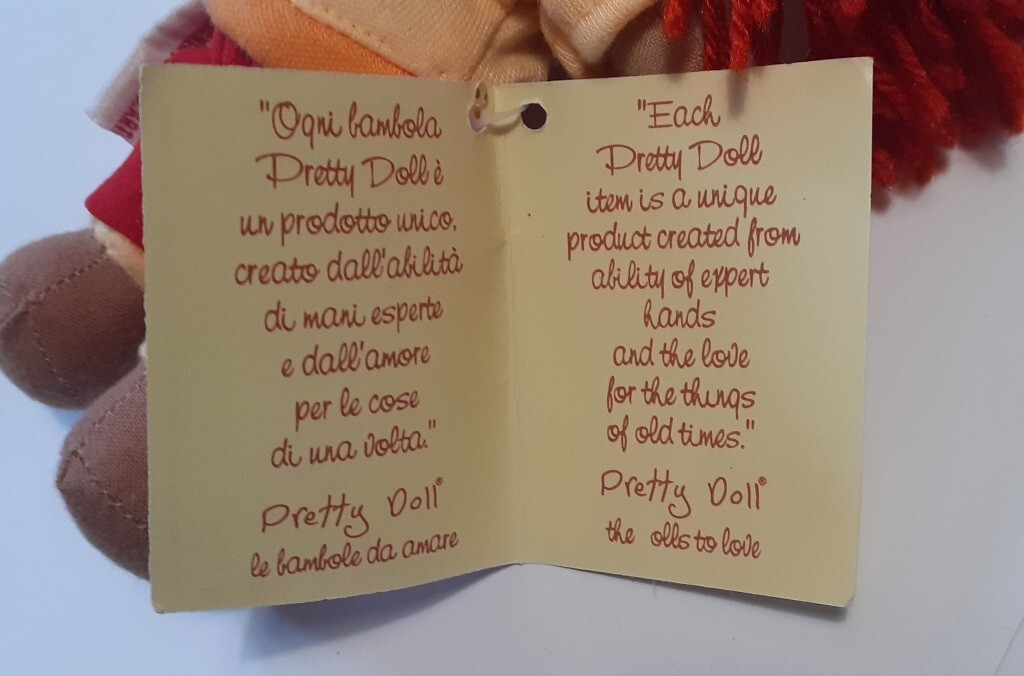 "Ogni bambola
Pretty Doll è
un prodotto unico,
creato dall'abilità
di mani esperte
e dall'amore
per le cose
di una volta."
Pretty Doll®
le bambole da amare
"Each
Pretty Doll
item is a unique
product created from
ability of expert
hands
and the love
for the things
of old times."
Pretty Doll®
the olls to love